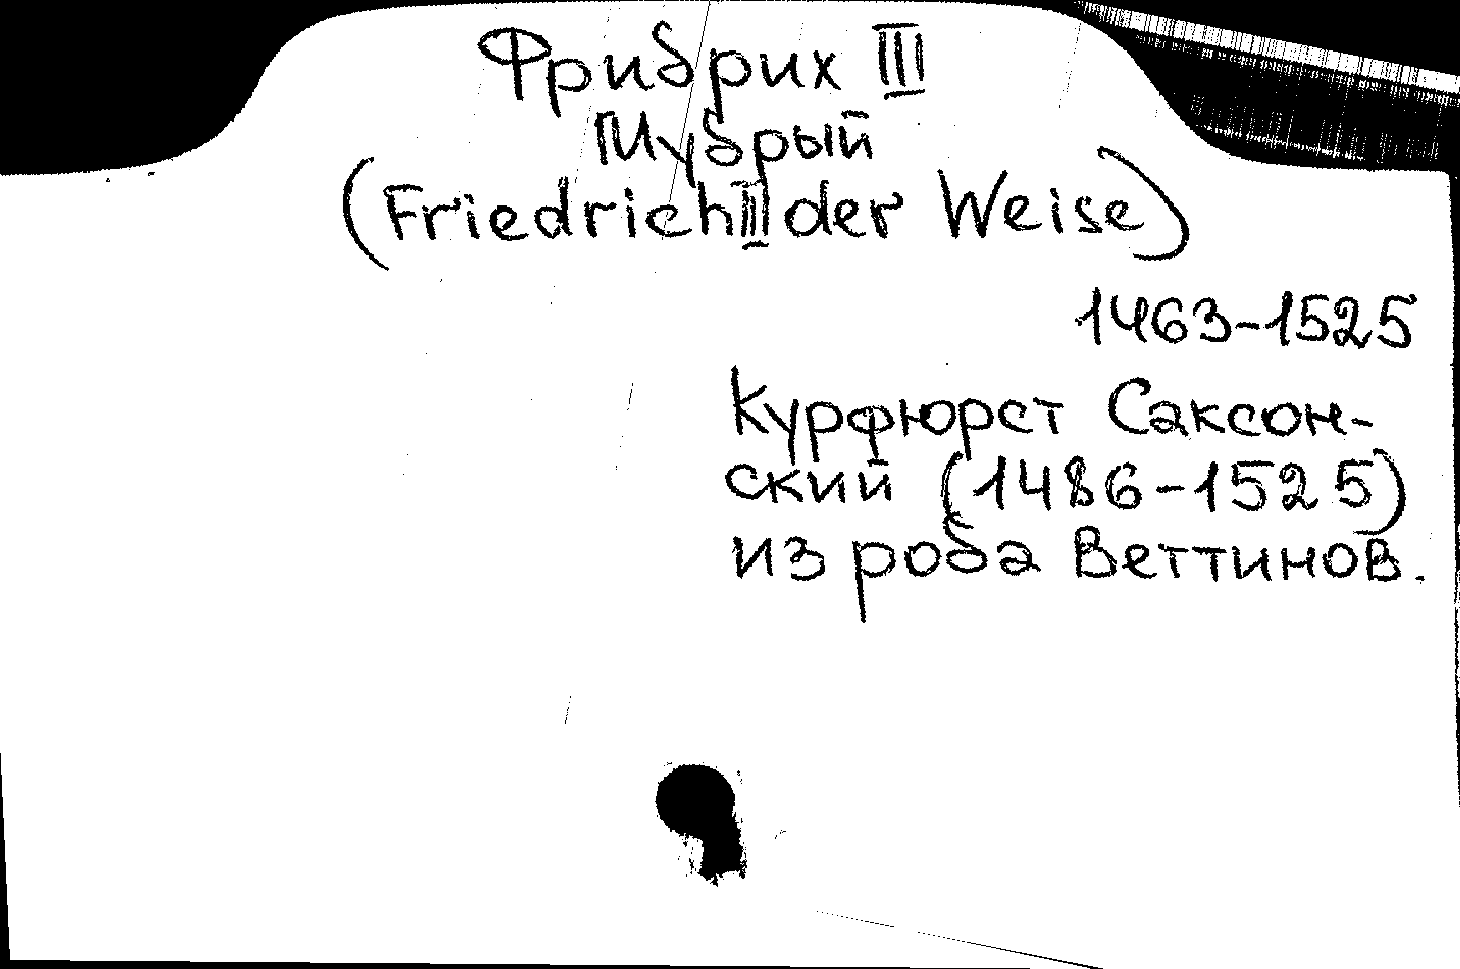 Фридрих III
Мудрый
(Friedrich III der Weise)
1463-1525
Курфюрст Саксон-
ский (1486-1525)
из рода Веттинов.